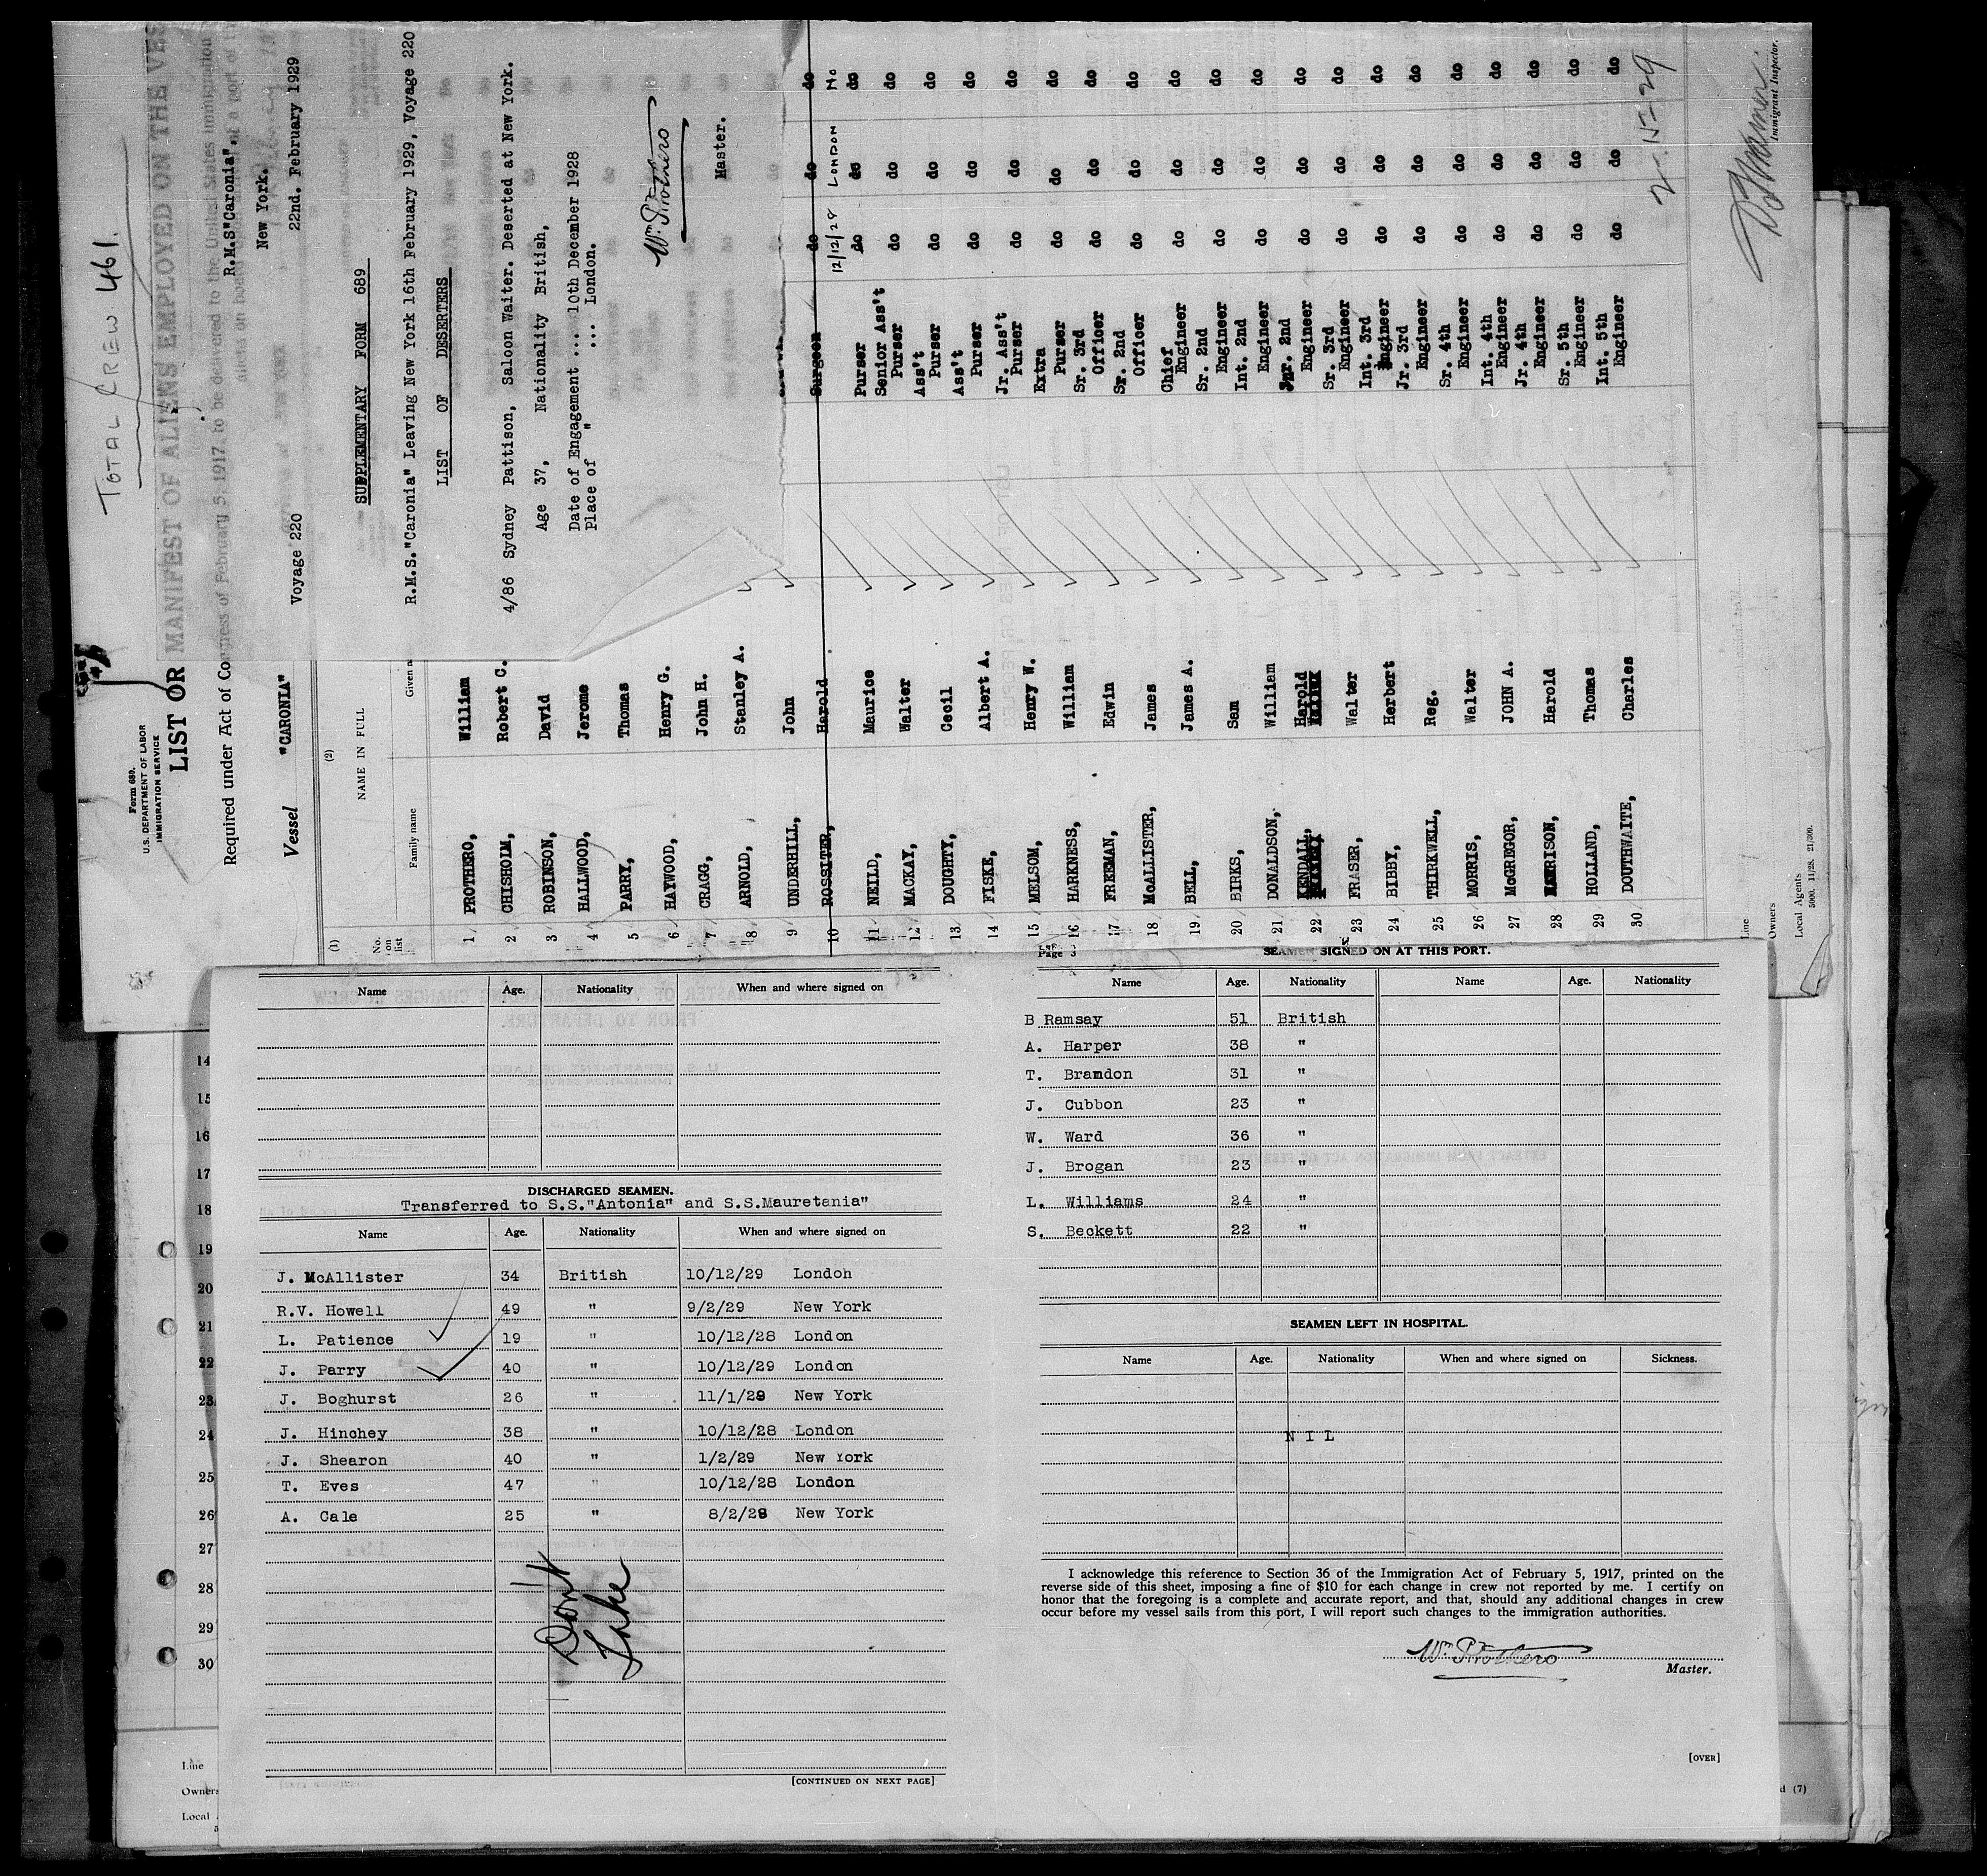 TOTAL CREW 461.
Form 689.
U.S. DEPARTMENT OF LABOR
IMMIGRATION SERVICE
LIST OR MANIFEST OF ALIENS EMPLOYED ON THE VES
Required under Act of Congress of February 5, 1917, to be delivered to the United States immigration
Vessel "CARONIA"
R.M.S"Caronia".
New York.
Voyage 220 22nd. February 1929
SUPPLEMENTARY FORM 689
R.M.S."Caronia" Leaving New York 16th February 1929, Voyage 220
LIST OF DESERTERS
4/86 Sydney Pattison, Saloon Waiter. Deserted at New York.
Age 37, Nationality British,
Date of Engagement ... 10th December 1928
Place of " ... London.
Wm. Prothero
Master.
(1) (2)
No. on list NAME IN FULL
Family name Given n
1 PROTHERO, William
2 CHISHOLM, Robert C.
3 ROBINSON, David
4 HALLWOOD, Jerome
5 PARRY, Thomas
6 HAYWOOD, Henry G.
7 CRAGG, John H.
8 ARNOLD, Stanley A.
9 UNDERHILL, John Surgeon do do do
10 ROSSITER, Harold 12/12/28 LONDON No
11 NEILD, Maurice Purser do do do
12 MACKAY, Walter Senior Ass't Purser do do do
13 DOUGHTY, Cecil Ass't Purser do do do
14 FISKE, Albert A. Ass't Purser do do do
15 MELSOM, Henry W. Jr. Ass't Purser do do do
16 HARKNESS, William Extra Purser do do do
17 FREEMAN, Edwin Sr. 3rd Officer do do do
18 McALLISTER, James Sr. 2nd Officer do do do
19 BELL, James A. Chief Engineer do do do
20 BIRKS, Sam Sr. 2nd Engineer do do do
21 DONALDSON, William Int. 2nd Engineer do do do
22 KENDALL, Harold Jnr. 2nd Engineer do do do
23 FRASER, Walter Sr. 3rd Engineer do do do
24 BIBBY, Herbert Int. 3rd Engineer do do do
25 THIRKWELL, Reg. Jr. 3rd Engineer do do do
26 MORRIS, Walter Sr. 4th Engineer do do do
27 McGREGOR, JOHN A. Int. 4th Engineer do do do
28 HARRISON, Harold Jr. 4th Engineer do do do
29 HOLLAND, Thomas Sr. 5th Engineer do do do
30 DOUTHWAITE, Charles Int. 5th Engineer do do do
2-15-29
Immigrant Inspector.
Line
Owners
Local Agents
5000. 11/28. 21/309.
14
15
16
17
18
19
20
21
22
23
24
25
26
27
28
29
30
Line
Owners
Local
d (7)
Name Age. Nationality When and where signed on
DISCHARGED SEAMEN.
Transferred to S.S."Antonia" and S.S.Mauretania"
Name Age. Nationality When and where signed on
J. McAllister 34 British 10/12/29 London
R.V. Howell 49 " 9/2/29 New York
L. Patience 19 " 10/12/28 London
J. Parry 40 " 10/12/29 London
J. Boghurst 26 " 11/1/29 New York
J. Hinchey 38 " 10/12/28 London
J. Shearon 40 " 1/2/29 New York
T. Eves 47 " 10/12/28 London
A. Cale 25 " 8/2/29 New York
Don't
Take
[CONTINUED ON NEXT PAGE]
Page 3
SEAMEN SIGNED ON AT THIS PORT.
Name Age. Nationality Name Age. Nationality
B Ramsay 51 British
A. Harper 38 "
T. Brandon 31 "
J. Cubbon 23 "
W. Ward 36 "
J. Brogan 23 "
L. Williams 24 "
S. Beckett 22 "
SEAMEN LEFT IN HOSPITAL.
Name Age. Nationality When and where signed on Sickness.
N I L
I acknowledge this reference to Section 36 of the Immigration Act of February 5, 1917, printed on the
reverse side of this sheet, imposing a fine of $10 for each change in crew not reported by me. I certify on
honor that the foregoing is a complete and accurate report, and that, should any additional changes in crew
occur before my vessel sails from this port, I will report such changes to the immigration authorities.
Wm. Prothero
Master.
[OVER]